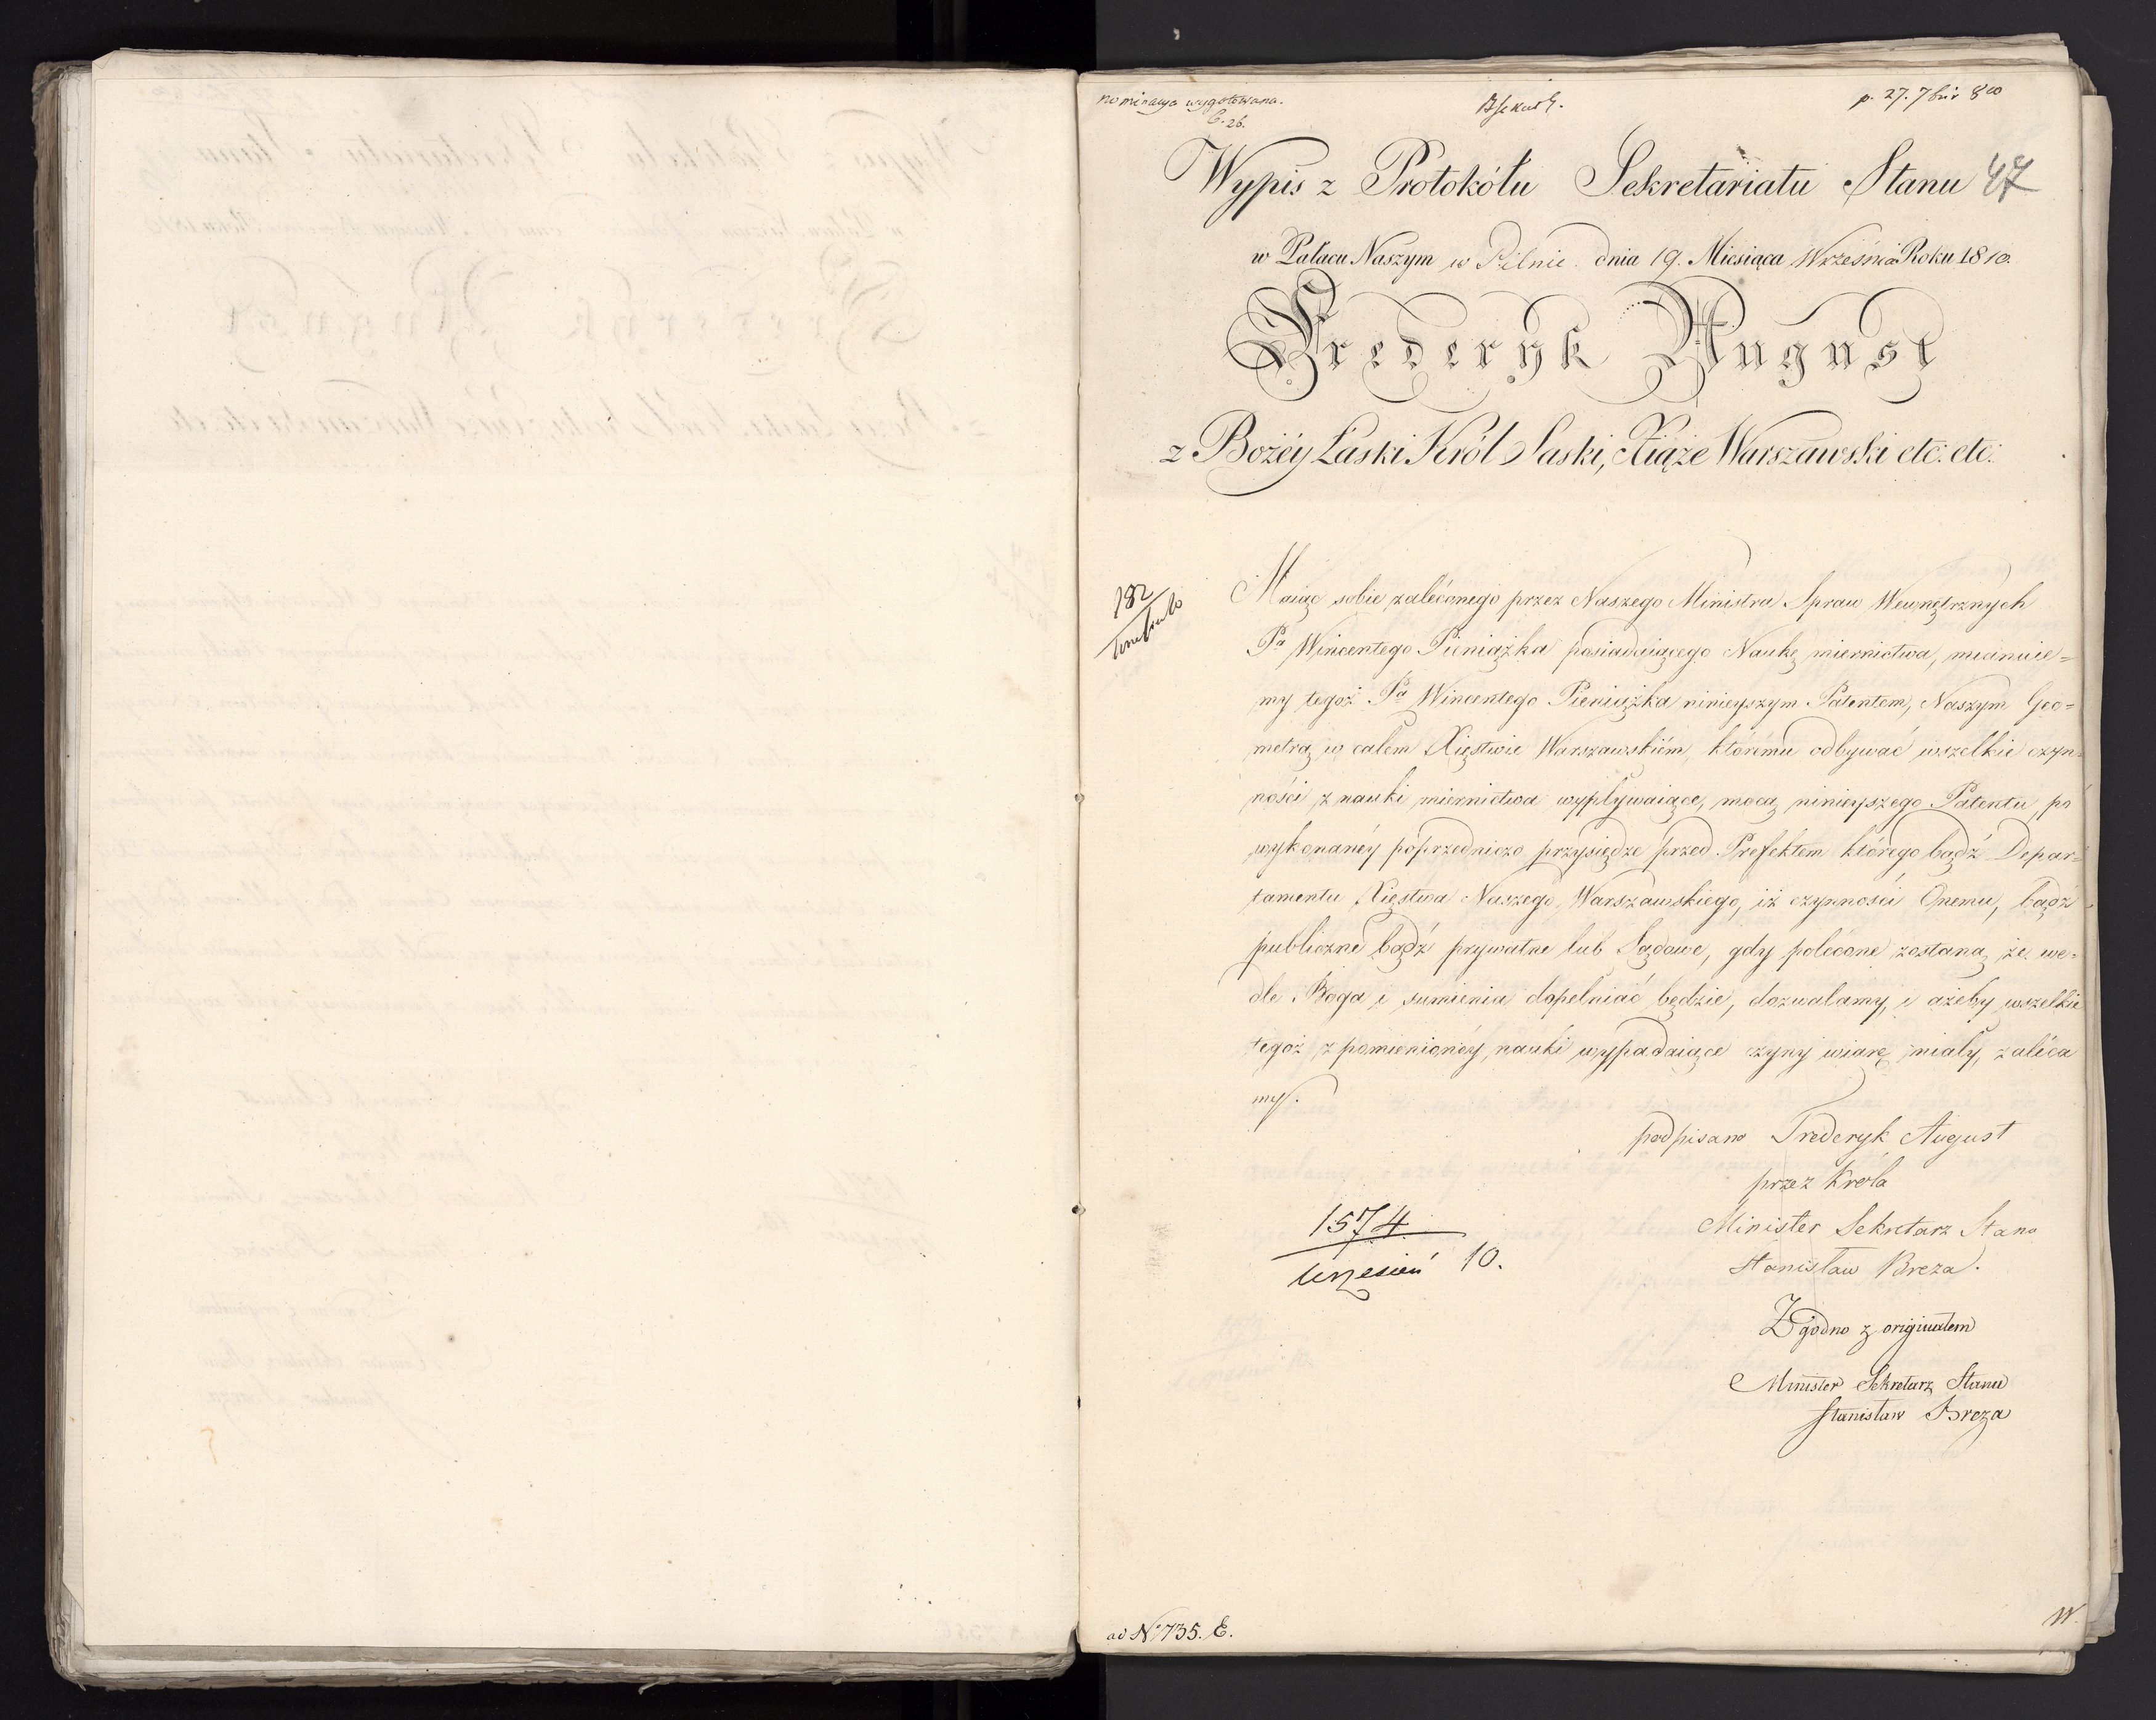 nominacya wygotowana.
C. 26.
p. 27. 7bris 810
Wypis z Protokółu Sekretariatu Stanu 47
w Pałacu Naszym w Pilnic dnia 19. Miesiąca Września Roku 1810.
Frederyk August
z Bożéy Łaski Król Saski, Xiąże Warszawski etc: etc:
132
Maiąc sobie zaleconego przez Naszego Ministra Spraw Wewnętrznych
Pa Wincentego Pieniążka posiadaiącego Naukę miernictwa, mianuie=
my tegoż Pa Wincentego Pieniążka ninieyszym Patentem, Naszym Geo=
metrą w całem Xięstwie Warszawskiém, któremu odbywać wszelkie czyn=
ności z nauki miernictwa wypływaiące, mocą ninieyszego Patentu, po
wykonanéy poprzedniczo przysiędze przed Prefektem którego bądź Depar=
tamentu Xięstwa Naszego Warszawskiego, iż czynności Onemu, bądź
publiczne bądź prywatne lub Sądowe, gdy polecone zostaną, że we=
dle Boga i sumienia dopełniać będzie, dozwalamy, i ażeby wszelkie
tegoż z pomienionéy nauki wypadaiące czyny wiarę miały, zaleca
my.
podpisano Frederyk August
przez Króla
Minister Sekretarz Stanu
Stanisław Breza.
1574
Wrzesień 10.
Zgodno z originałem
Minister Sekretarz Stanu
Stanisław Breza
ad No 735. E.
W.